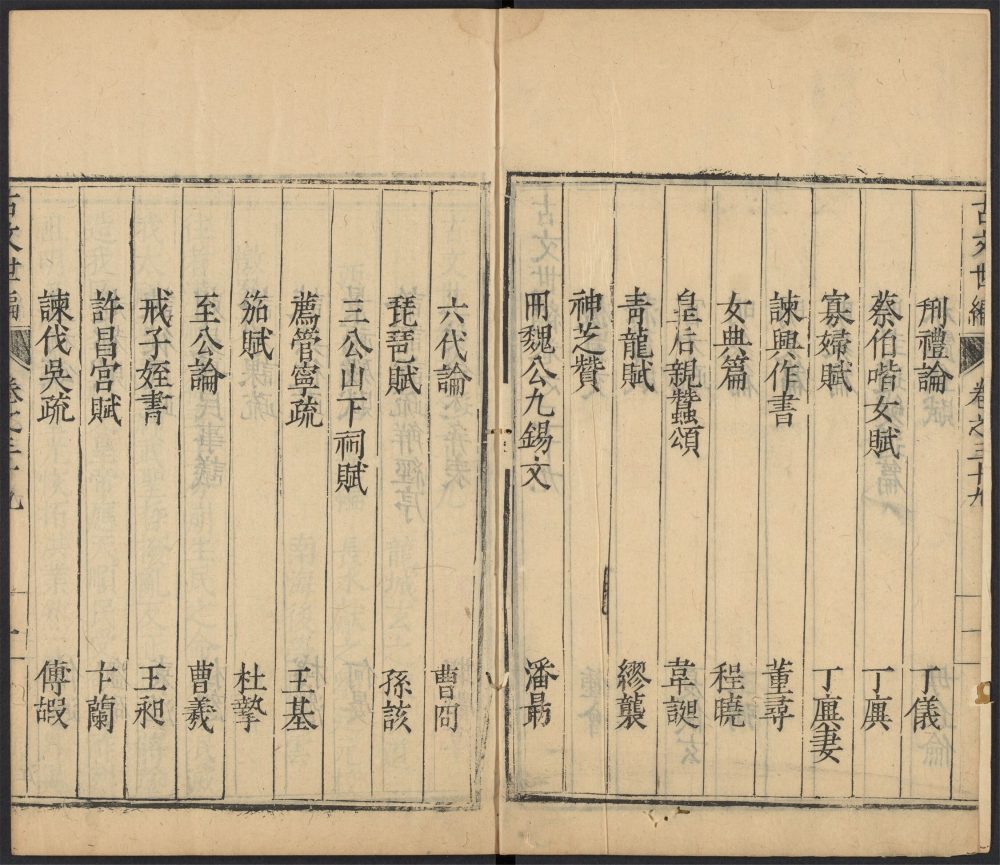 古文世編
卷之三十九
一
刑禮論 丁儀
蔡伯喈女賦 丁廙
寡婦賦 丁廙妻
諫興作書 董尋
女典篇 程曉
皇后親蠶頌 韋誕
青龍賦 繆襲
神芝贊
冊魏公九錫文 潘勗
六代論 曹冏
琵琶賦 孫該
三公山下祠賦
薦管寧疏 王基
笳賦 杜摯
至公論 曹羲
戒子姪書 王昶
許昌宮賦 卞蘭
諫伐吳疏 傅嘏
古文世編
卷之三十九